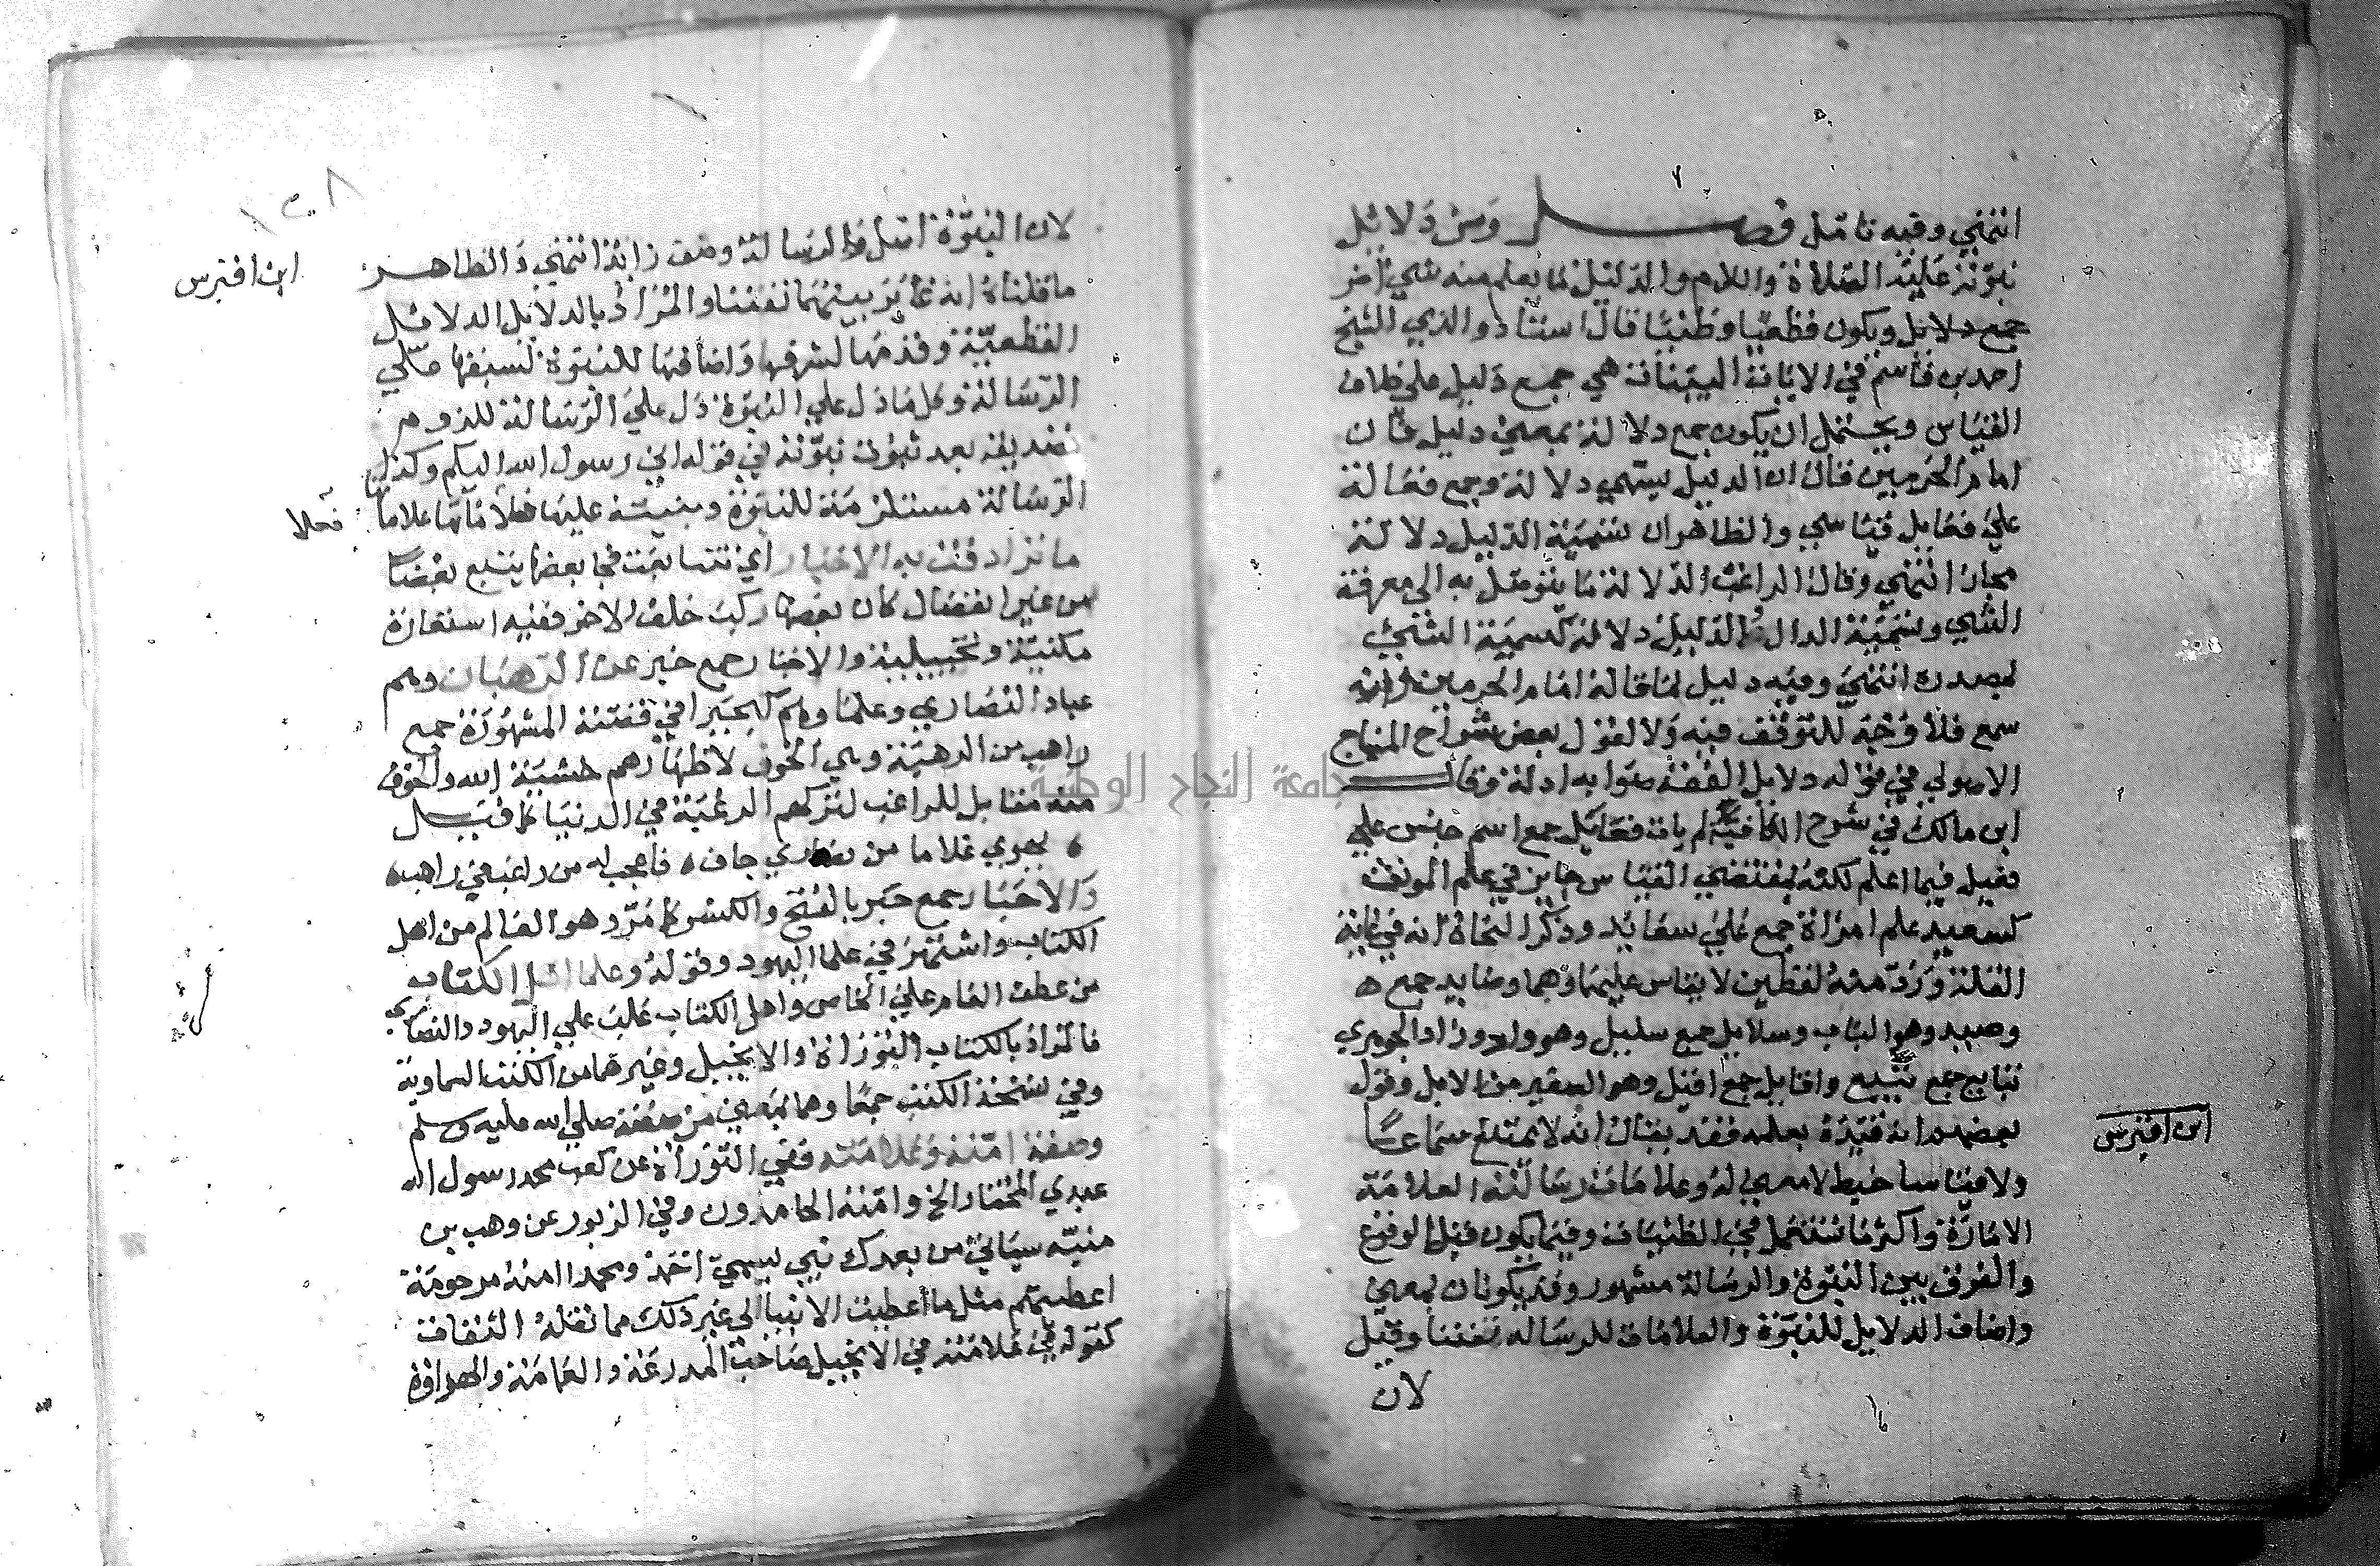 انتهي وفيه تامل فصل ومن دلائل
نبوته عليه الصلاة والسلام والدليل ما يعلم منه شيء اخر
جمع دلايل ويكون قطعيا وظنيا قال استاذ والذي الشيخ
احمد بن قاسم في الايات البينات هي جمع دليل علي خلاف
القياس ويحتمل ان يكون جمع دلالة بمعني دليل فان
امام الحرمين قال ان الدليل يسمي دلالة وجمع فعالة
علي فعايل قياسي والظاهر ان تسمية الدليل دلالة
مجاز انتهي وقال الراغب الدلالة ما يتوصل به الي معرفة
الشي وتسمية الدال والدليل دلالة كتسمية الشيء
بمصدره انتهي وفيه دليل لما قاله امام الحرمين وانه
سمع فلا وجه للتوقف فيه ولا لقول بعض شراح المنهاج
الاصولي في قوله دلايل الفقه صوابه ادلة وقال
ابن مالك في شرح الكافية لم يات فعايل جمع اسم جنس علي
فعيل فيما اعلم لكنه بمقتضي القياس جايز في علم المونث
كسعيد علم امراة جمع علي سعايد وذكر النحاة انه في غاية
القلة ورد منه لفظين لا يقاس عليهما وهما وصايد جمع ه
وصيد وهو الباب وسلايل جمع سليل وهو واد وزاد الجوهري
تبايع جمع تبيع وافايل جمع افيل وهو الصغير من الابل وقول
بعضهم انه قيده بعلم فقد يقال انه لا يمتنع سماعا
ابن اقبرس
ولا قياسا خبط لا معني له وعلامات رسالته العلامة
الامارة واكثر ما تستعمل في الظنيات وفيما يكون قبل الوقوع
والفرق بين النبوة والرسالة مشهور وقد يكونان بمعني
واضاف الدلايل للنبوة والعلامات للرسالة تفننا وقيل
لان
لان النبوة اصل والرسالة وصف زايد انتهي والظاهر
ابن اقبرس
ما قلناه انه غاير بينهما تفننا والمراد بالدلايل الدلايل
القطعية وقدمها لشرفها واضافها للنبوة لسبقها علي
الرسالة وكل ما دل علي النبوة دل علي الرسالة للزوم
تصديقه بعد ثبوت نبوته في قوله اني رسول الله اليكم وكذا
الرسالة مستلزمة للنبوة ومبنية عليها فعلاماتها علاماتها
فعلا
ما ترادفت به الاخبار اي تتابعت فجا بعضها يتبع بعضا
من غير انفصال كان بعضها ركب خلف الاخر ففيه استعارة
مكنية وتخييلية والاخبار جمع خبر عن الرهبان وهم
عباد النصاري وعلماوهم كبحيرا في قصته المشهورة جمع
راهب من الرهبة وهي الخوف لاظهارهم خشية الله والخوف
منه مقابل للراغب لتركهم الرغبة في الدنيا كما قيل
ه يهوي غلاما من نصاري جاف ه فاعجب له من راغب في راهب ه
والاحبار جمع حبر بالفتح والكسر كما مر وهو العالم من اهل
الكتاب واشتهر في علما اليهود وقوله وعلما اهل الكتاب
من عطف العام علي الخاص واهل الكتاب غلب علي اليهود والنصاري
فالمراد بالكتاب التوراة والانجيل وغيرهما من الكتب السماوية
وفي نسخة الكتب جمعا وهما بمعني من صفته صلي الله عليه وسلم
وصفة امته وعلامته ففي التوراة عن كعب محمد رسول الله
عبدي المختار الخ وامته الحامدون وفي الزبور عن وهب بن
منبه سياتي من بعدك نبي يسمي احمد ومحمدا امته مرحومة
اعطيتهم مثل ما اعطيت الانبيا الي غير ذلك مما نقله الثقات
كقوله في علامته في الانجيل صاحب المدرعة والعمامة والهراوة